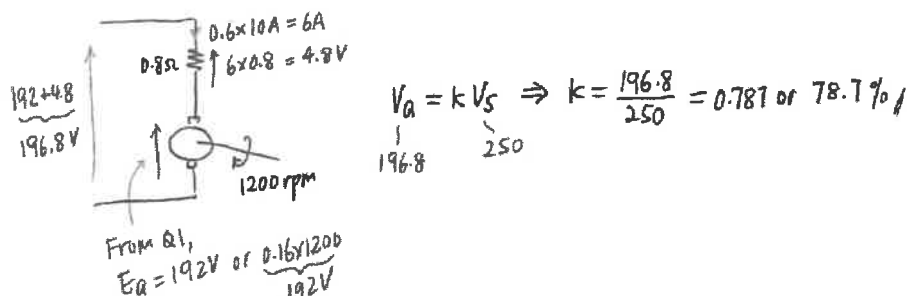 0.6×10A = 6A
0.8Ω
6×0.8 = 4.8V
192+4.8
196.8V
1200rpm
From Q1,
Ea = 192V or 0.16×1200
192V
Va = k Vs ⇒ k = 196.8/250 = 0.787 or 78.7%
196.8
250